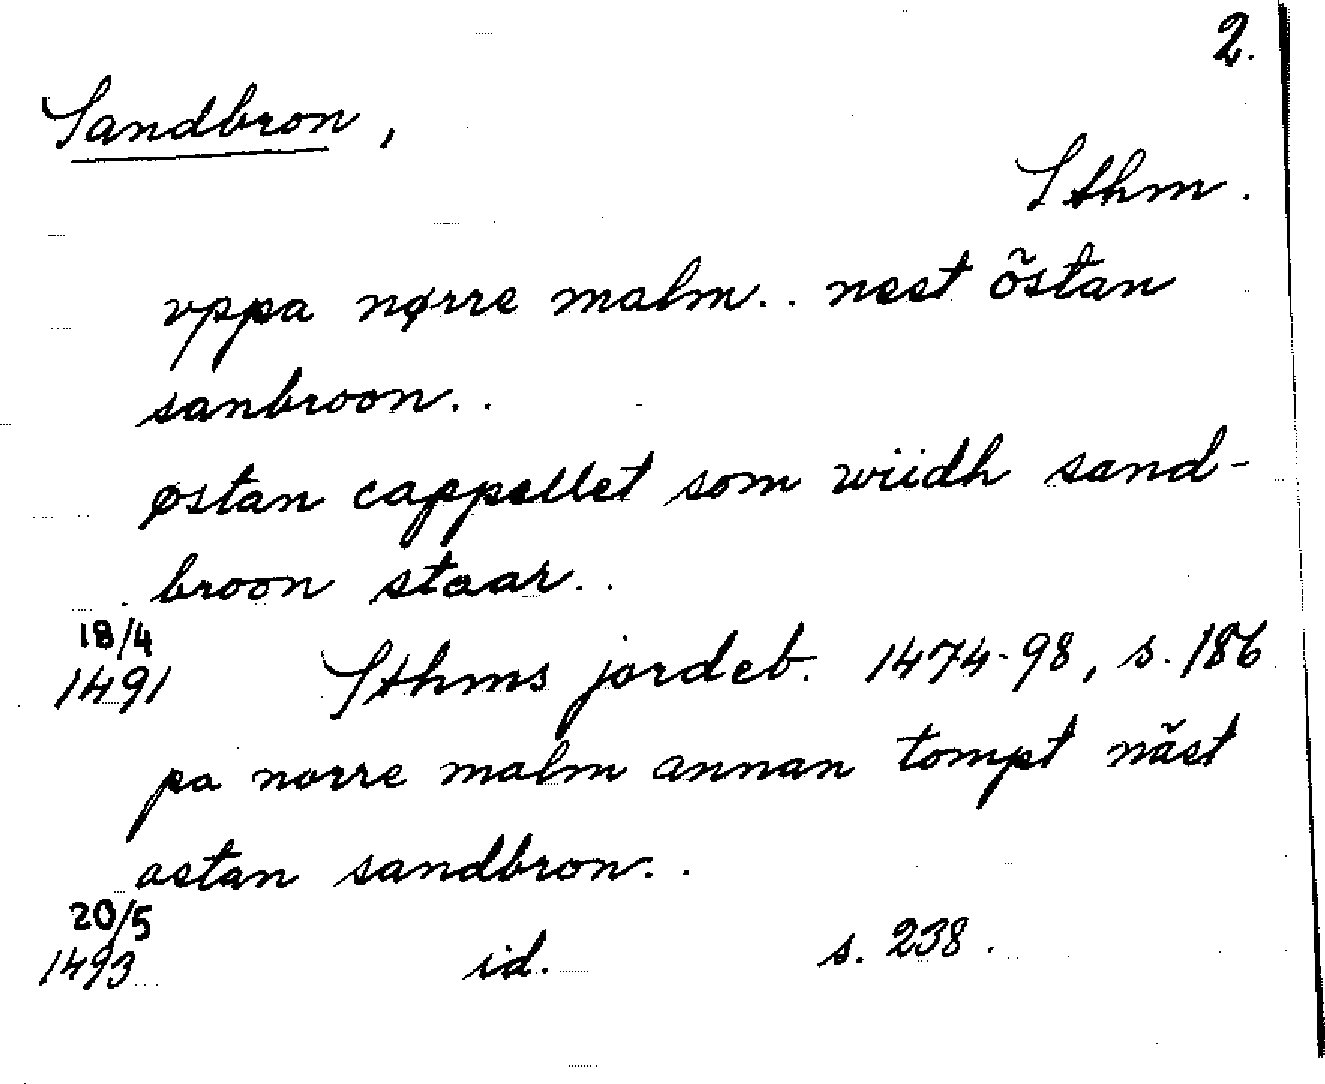 2.
Sandbron,
Sthm.
vppa nørre malm.. nest õstan
sanbroon..
østan cappellet som wiidh sand-
broon staar..
18/4
1491 Sthms jordeb. 1474-98, s. 186
pa norre malm annan tompt näst
ostan sandbron..
20/5
1493 id. s. 238.